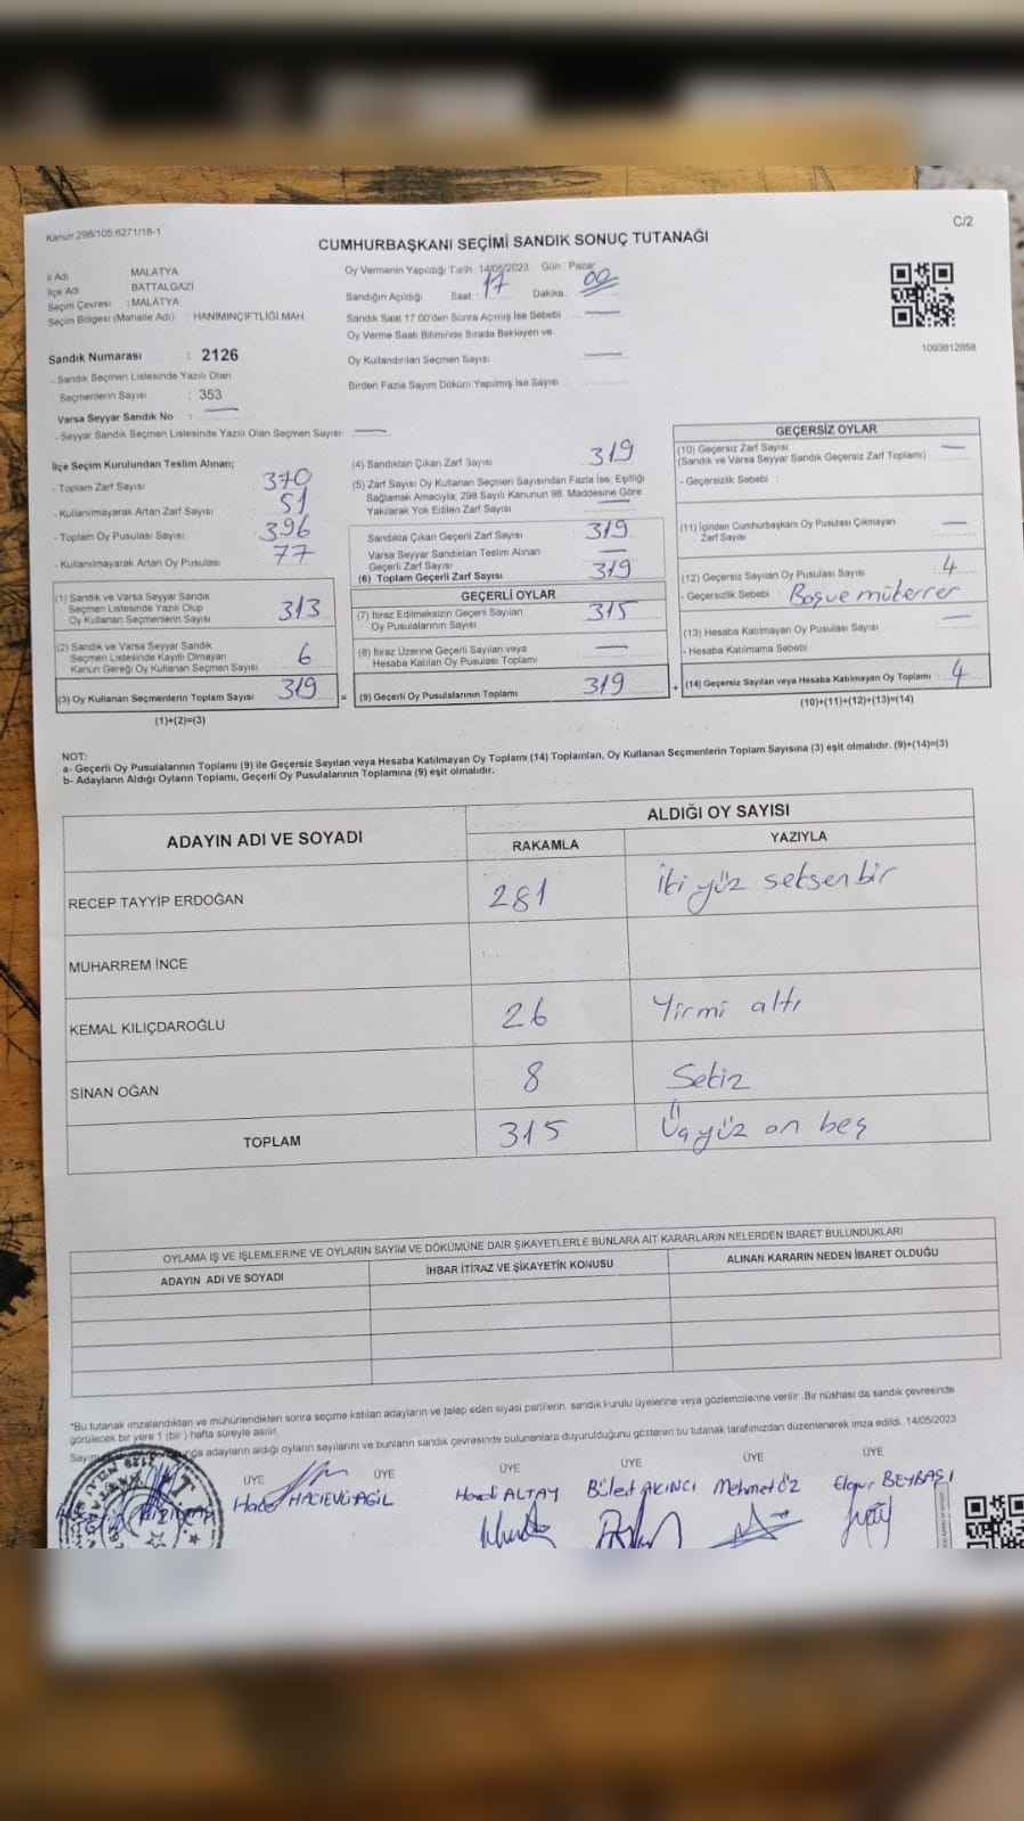 Kanun 298/105 6271/18-1
C/2
CUMHURBAŞKANI SEÇİMİ SANDIK SONUÇ TUTANAĞI
İl Adı MALATYA
İlçe Adı BATTALGAZİ
Seçim Çevresi : MALATYA
Seçim Bölgesi (Mahalle Adı) : HANIMINÇİFTLİĞİ MAH.
Sandık Numarası : 2126
- Sandık Seçmen Listesinde Yazılı Olan
Seçmenlerin Sayısı : 353
Varsa Seyyar Sandık No :
- Seyyar Sandık Seçmen Listesinde Yazılı Olan Seçmen Sayısı:
Oy Vermenin Yapıldığı Tarih : 14/05/2023 Gün : Pazar
Sandığın Açıldığı Saat : 17 Dakika : 00
Sandık Saat 17:00'den Sonra Açılmış İse Sebebi
Oy Verme Saati Bitiminde Sırada Bekleyen ve
Oy Kullandırılan Seçmen Sayısı
Birden Fazla Sayım Döküm Yapılmış İse Sayısı
1093812858
İlçe Seçim Kurulundan Teslim Alınan;
- Toplam Zarf Sayısı 370
- Kullanılmayarak Artan Zarf Sayısı 51
- Toplam Oy Pusulası Sayısı 396
- Kullanılmayarak Artan Oy Pusulası 77
(1) Sandık ve Varsa Seyyar Sandık
Seçmen Listesinde Yazılı Olup
Oy Kullanan Seçmenlerin Sayısı 313
(2) Sandık ve Varsa Seyyar Sandık
Seçmen Listesinde Kayıtlı Olmayan
Kanun Gereği Oy Kullanan Seçmen Sayısı 6
(3) Oy Kullanan Seçmenlerin Toplam Sayısı 319 =
(1)+(2)=(3)
(4) Sandıktan Çıkan Zarf Sayısı 319
(5) Zarf Sayısı Oy Kullanan Seçmen Sayısından Fazla İse, Eşitliği
Sağlamak Amacıyla, 298 Sayılı Kanunun 98. Maddesine Göre
Yakılarak Yok Edilen Zarf Sayısı
Sandıkta Çıkan Geçerli Zarf Sayısı 319
Varsa Seyyar Sandıktan Teslim Alınan
Geçerli Zarf Sayısı
(6) Toplam Geçerli Zarf Sayısı 319
GEÇERLİ OYLAR
(7) İtiraz Edilmeksizin Geçerli Sayılan
Oy Pusulalarının Sayısı 315
(8) İtiraz Üzerine Geçerli Sayılan veya
Hesaba Katılan Oy Pusulası Toplamı
(9) Geçerli Oy Pusulalarının Toplamı 319 +
GEÇERSİZ OYLAR
(10) Geçersiz Zarf Sayısı
(Sandık ve Varsa Seyyar Sandık Geçersiz Zarf Toplamı)
- Geçersizlik Sebebi :
(11) İçinden Cumhurbaşkanı Oy Pusulası Çıkmayan
Zarf Sayısı
(12) Geçersiz Sayılan Oy Pusulası Sayısı 4
- Geçersizlik Sebebi Boş ve müterrer
(13) Hesaba Katılmayan Oy Pusulası Sayısı
- Hesaba Katılmama Sebebi
(14) Geçersiz Sayılan veya Hesaba Katılmayan Oy Toplamı : 4
(10)+(11)+(12)+(13)=(14)
NOT:
a- Geçerli Oy Pusulalarının Toplamı (9) ile Geçersiz Sayılan veya Hesaba Katılmayan Oy Toplamı (14) Toplamları, Oy Kullanan Seçmenlerin Toplam Sayısına (3) eşit olmalıdır. (9)+(14)=(3)
b- Adayların Aldığı Oyların Toplamı, Geçerli Oy Pusulalarının Toplamına (9) eşit olmalıdır.
ADAYIN ADI VE SOYADI ALDIĞI OY SAYISI
RAKAMLA YAZIYLA
RECEP TAYYİP ERDOĞAN 281 İki yüz seksen bir
MUHARREM İNCE
KEMAL KILIÇDAROĞLU 26 Yirmi altı
SİNAN OĞAN 8 Sekiz
TOPLAM 315 Üçyüz on beş
OYLAMA İŞ VE İŞLEMLERİNE VE OYLARIN SAYIM VE DÖKÜMÜNE DAİR ŞİKAYETLERLE BUNLARA AİT KARARLARIN NELERDEN İBARET BULUNDUKLARI
ADAYIN ADI VE SOYADI İHBAR İTİRAZ VE ŞİKAYETİN KONUSU ALINAN KARARIN NEDEN İBARET OLDUĞU
*Bu tutanak imzalandıktan ve mühürlendikten sonra seçime katılan adayların ve talep eden siyasi partilerin, sandık kurulu üyelerine veya gözlemcilerine verilir. Bir nüshası da sandık çevresinde
görülecek bir yere 1 (bir) hafta süreyle asılır.
adayların aldığı oyların sayılarını ve bunların sandık çevresinde bulunanlara duyurulduğunu gösteren bu tutanak tarafımızdan düzenlenerek imza edildi. 14/05/2023
ÜYE ÜYE ÜYE ÜYE ÜYE ÜYE
HACIEVLİAGİL ALTAY Bülent AKINCI Mehmet ÖZ BEYBAŞI